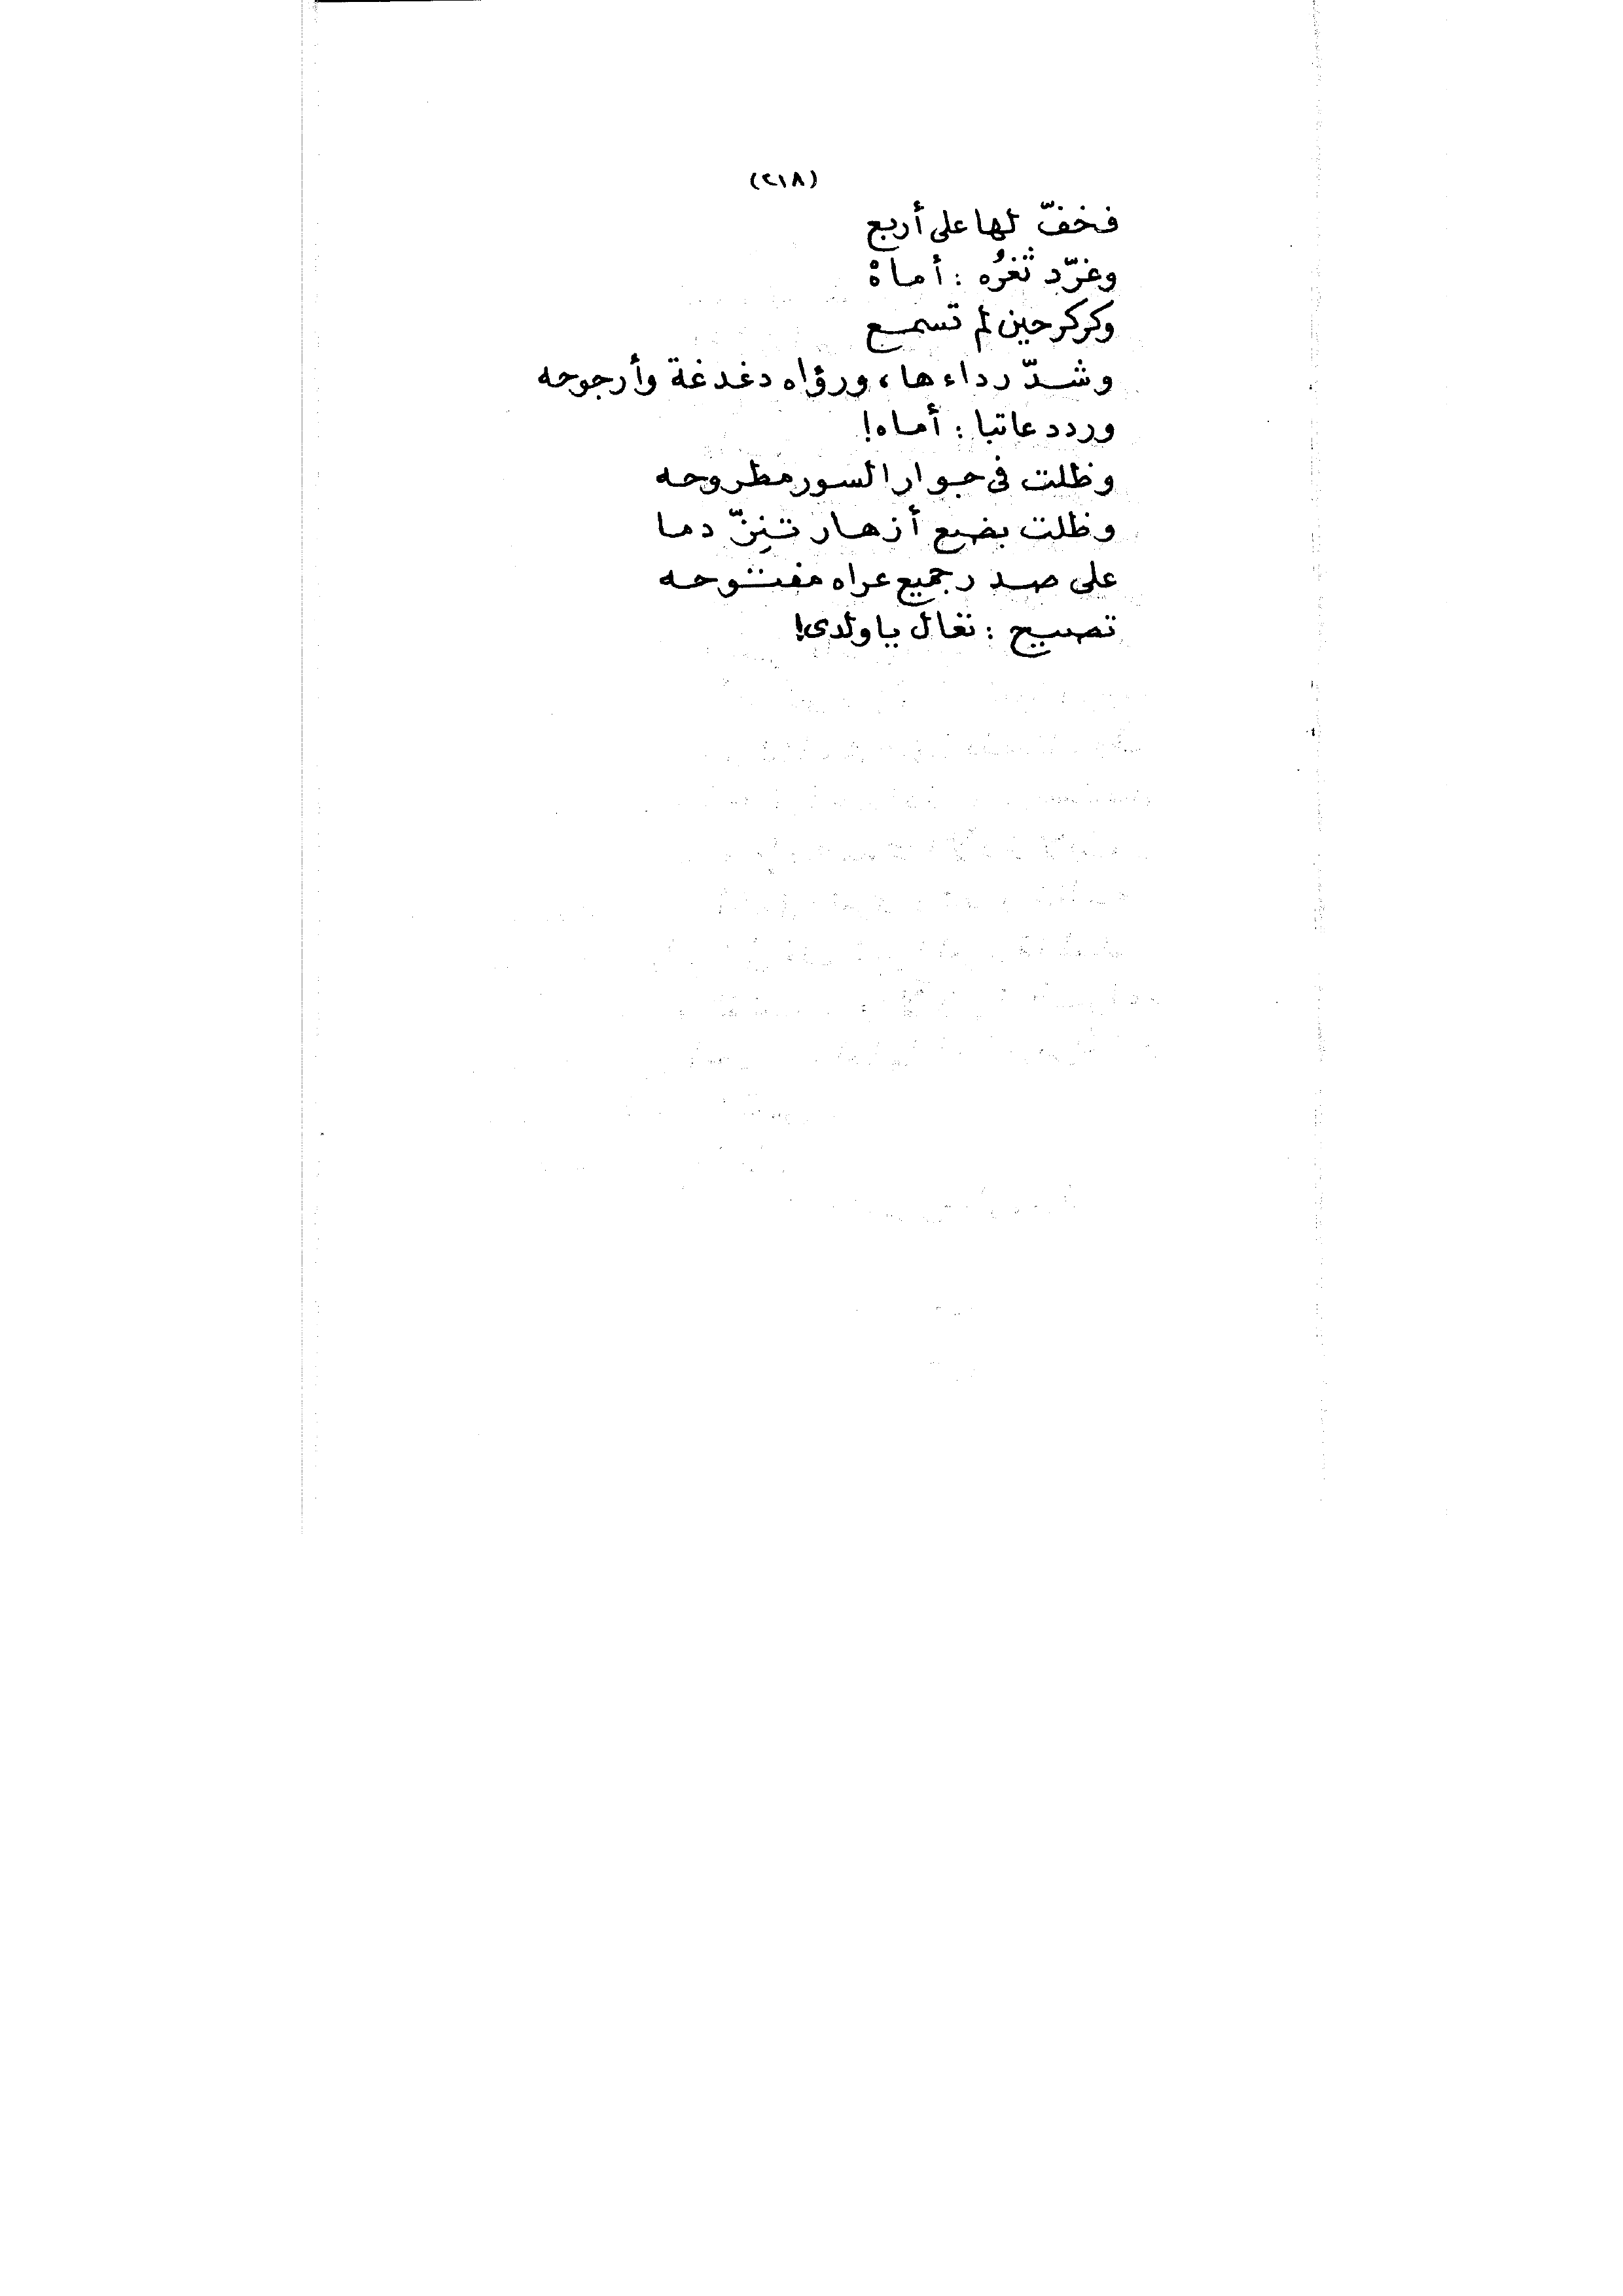 (٢١٨)
فخفّ لها على أربع
وغرّد ثغرُه : أماهْ
وكركر حين لم تسمع
وشدّ رداءها، ورؤاه دغدغة وأرجوحه
وردد عاتبا : أماه!
وظلت فى جوار السور مطروحه
وظلت بضع أزهار تنِزّ دما
على صدر جميع عراه مفتوحه
تصيح : تعال ياولدى!